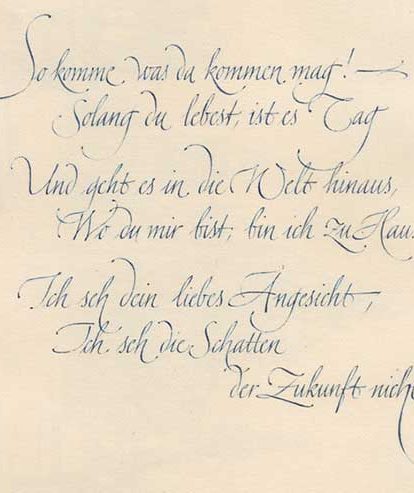 So komme, was da kommen mag! –
Solang du lebest, ist es Tag
Und geht es in die Welt hinaus,
Wo du mir bist, bin ich zu Haus
Ich seh dein liebes Angesicht,
Ich seh die Schatten
der Zukunft nicht